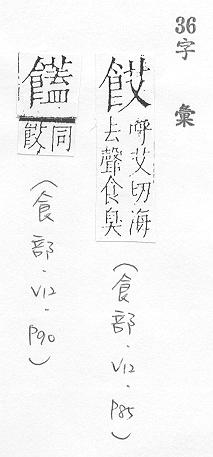 36字彙
餀
呼艾切海
去聲食臭
(食部.V12.P85)
饚
同
餀
(食部.V12.P90)